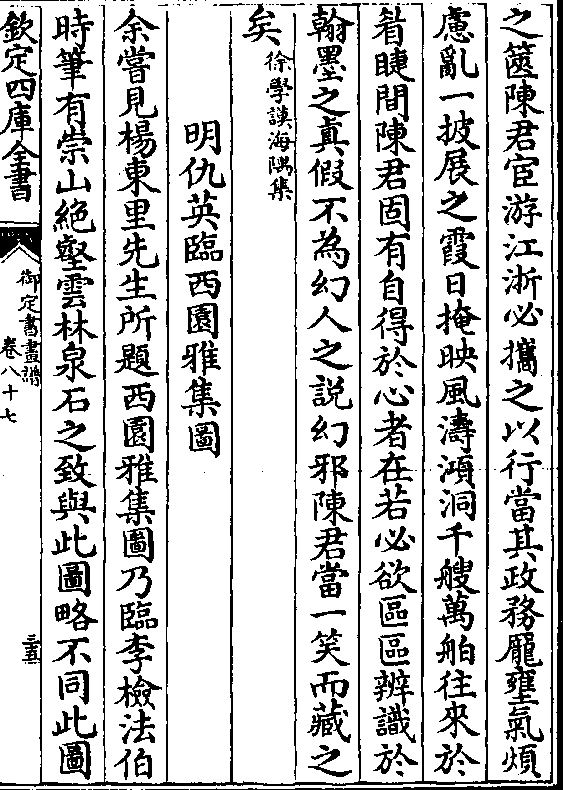 之篋陳君宦游江浙必攜之以行當其政務龎壅氣煩
慮亂一披展之霞日掩映風濤澒洞千艘萬舶往來於
眉睫間陳君固有自得於心者在若必欲區區辨識於
翰墨之真假不為幻人之説幻邪陳君當一笑而藏之
矣 徐學謨海隅集
明仇英臨西園雅集圖
余嘗見楊東里先生所題西園雅集圖乃臨李檢法伯
時筆有崇山絶壑雲林泉石之致與此圖略不同此圖
欽定四庫全書
御定書畫譜
卷八十七
三五